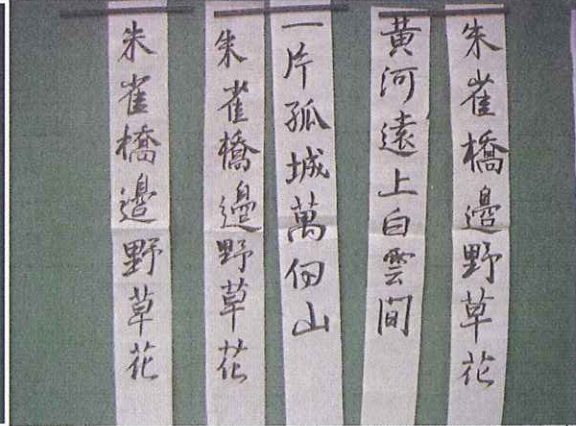 朱雀橋邊野草花
黃河遠上白雲間
一片孤城萬仞山
朱雀橋邊野草花
朱雀橋邊野草花